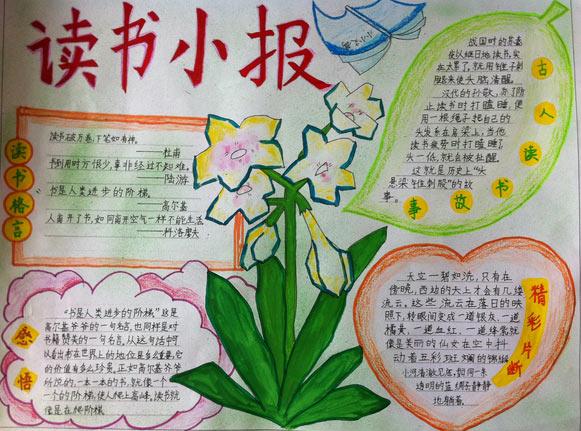 读书小报
读书格言
读书破万卷,下笔如有神。
——杜甫
书到用时方恨少,事非经过不知难。
——陆游
书是人类进步的阶梯。
——高尔基
人离开了书,如同离开空气一样不能生活
——科洛廖夫
古人读书故事
战国时的苏秦
夜以继日地读书,实
在太累了,就用锥子刺
腿来使头脑清醒。
汉代的孙敬,为了防
止读书时打瞌睡,便
用一根绳子把自己的
头发系在房梁上,当他
读书疲劳时打瞌睡了
头一低,就会被扯醒
这就是历史上“头
悬梁锥刺股”的故
事。
感悟
“书是人类进步的阶梯”这是
高尔基爷爷的一句名言,也同样是对
书籍赞美的一句名言,从这句话中可
以看出书在世界上的地位是多么重要,它
的价值有多么珍贵。正如高尔基爷爷
所说的,一本一本的书,就像一个
一个的阶梯,使人爬上高峰,读书就
像是在爬阶梯
精彩片断
天空一碧如洗,只有在
傍晚,西边的天上才会有几缕
流云,这些流云在落日的映
照下,转眼间变成一道银灰、一道
橘黄、一道血红、一道绛紫,就
像是美丽的仙女在空中抖
动着五彩斑斓的锦缎
小河清澈见底,如同一条
透明的蓝绸子,静静
地躺着